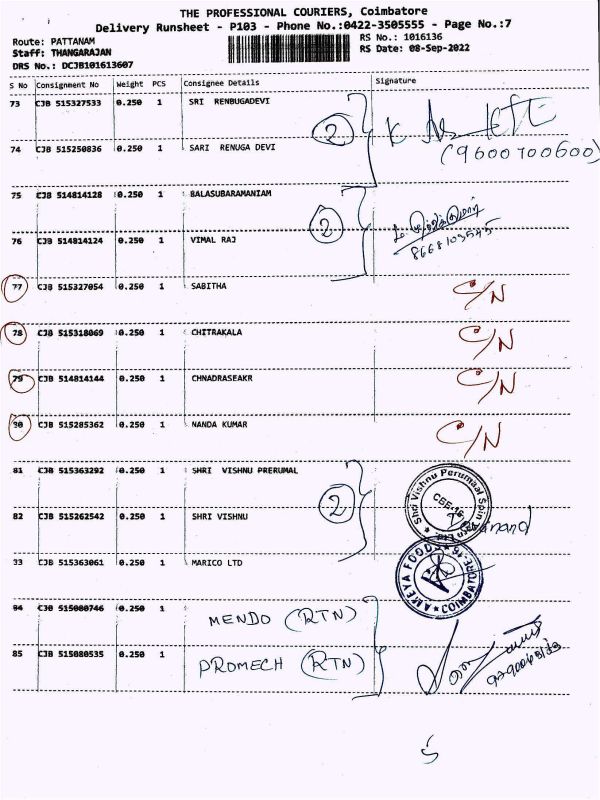 THE PROFESSIONAL COURIERS, Coimbatore
Delivery Runsheet - P103 - Phone No.:0422-3505555 - Page No.:7
Route: PATTANAM
RS No.: 1016136
Staff: THANGARAJAN
RS Date: 08-Sep-2022
DRS No.: DCJB101613607
S No Consignment No Weight PCS Consignee Details Signature
73 CJB 515327533 0.250 1 SRI RENBUGADEVI
2
74 CJB 515250836 0.250 1 SARI RENUGA DEVI (9600700600)
75 CJB 514814128 0.250 1 BALASUBARAMANIAM
2
76 CJB 514814124 0.250 1 VIMAL RAJ
77 CJB 515327054 0.250 1 SABITHA C/N
78 CJB 515318069 0.250 1 CHITRAKALA C/N
79 CJB 514814144 0.250 1 CHNADRASEAKR C/N
80 CJB 515285362 0.250 1 NANDA KUMAR C/N
81 CJB 515363292 0.250 1 SHRI VISHNU PRERUMAL
2 Shri Vishnu Perumaal Spin
82 CJB 515262542 0.250 1 SHRI VISHNU
33 CJB 515363061 1 MARICO LTD
AMEYA FOODS COIMBATORE-16
84 CJB 515080746 0.250 1 MENDO (RTN)
85 CJB 515080535 0.250 1 PROMECH (RTN)